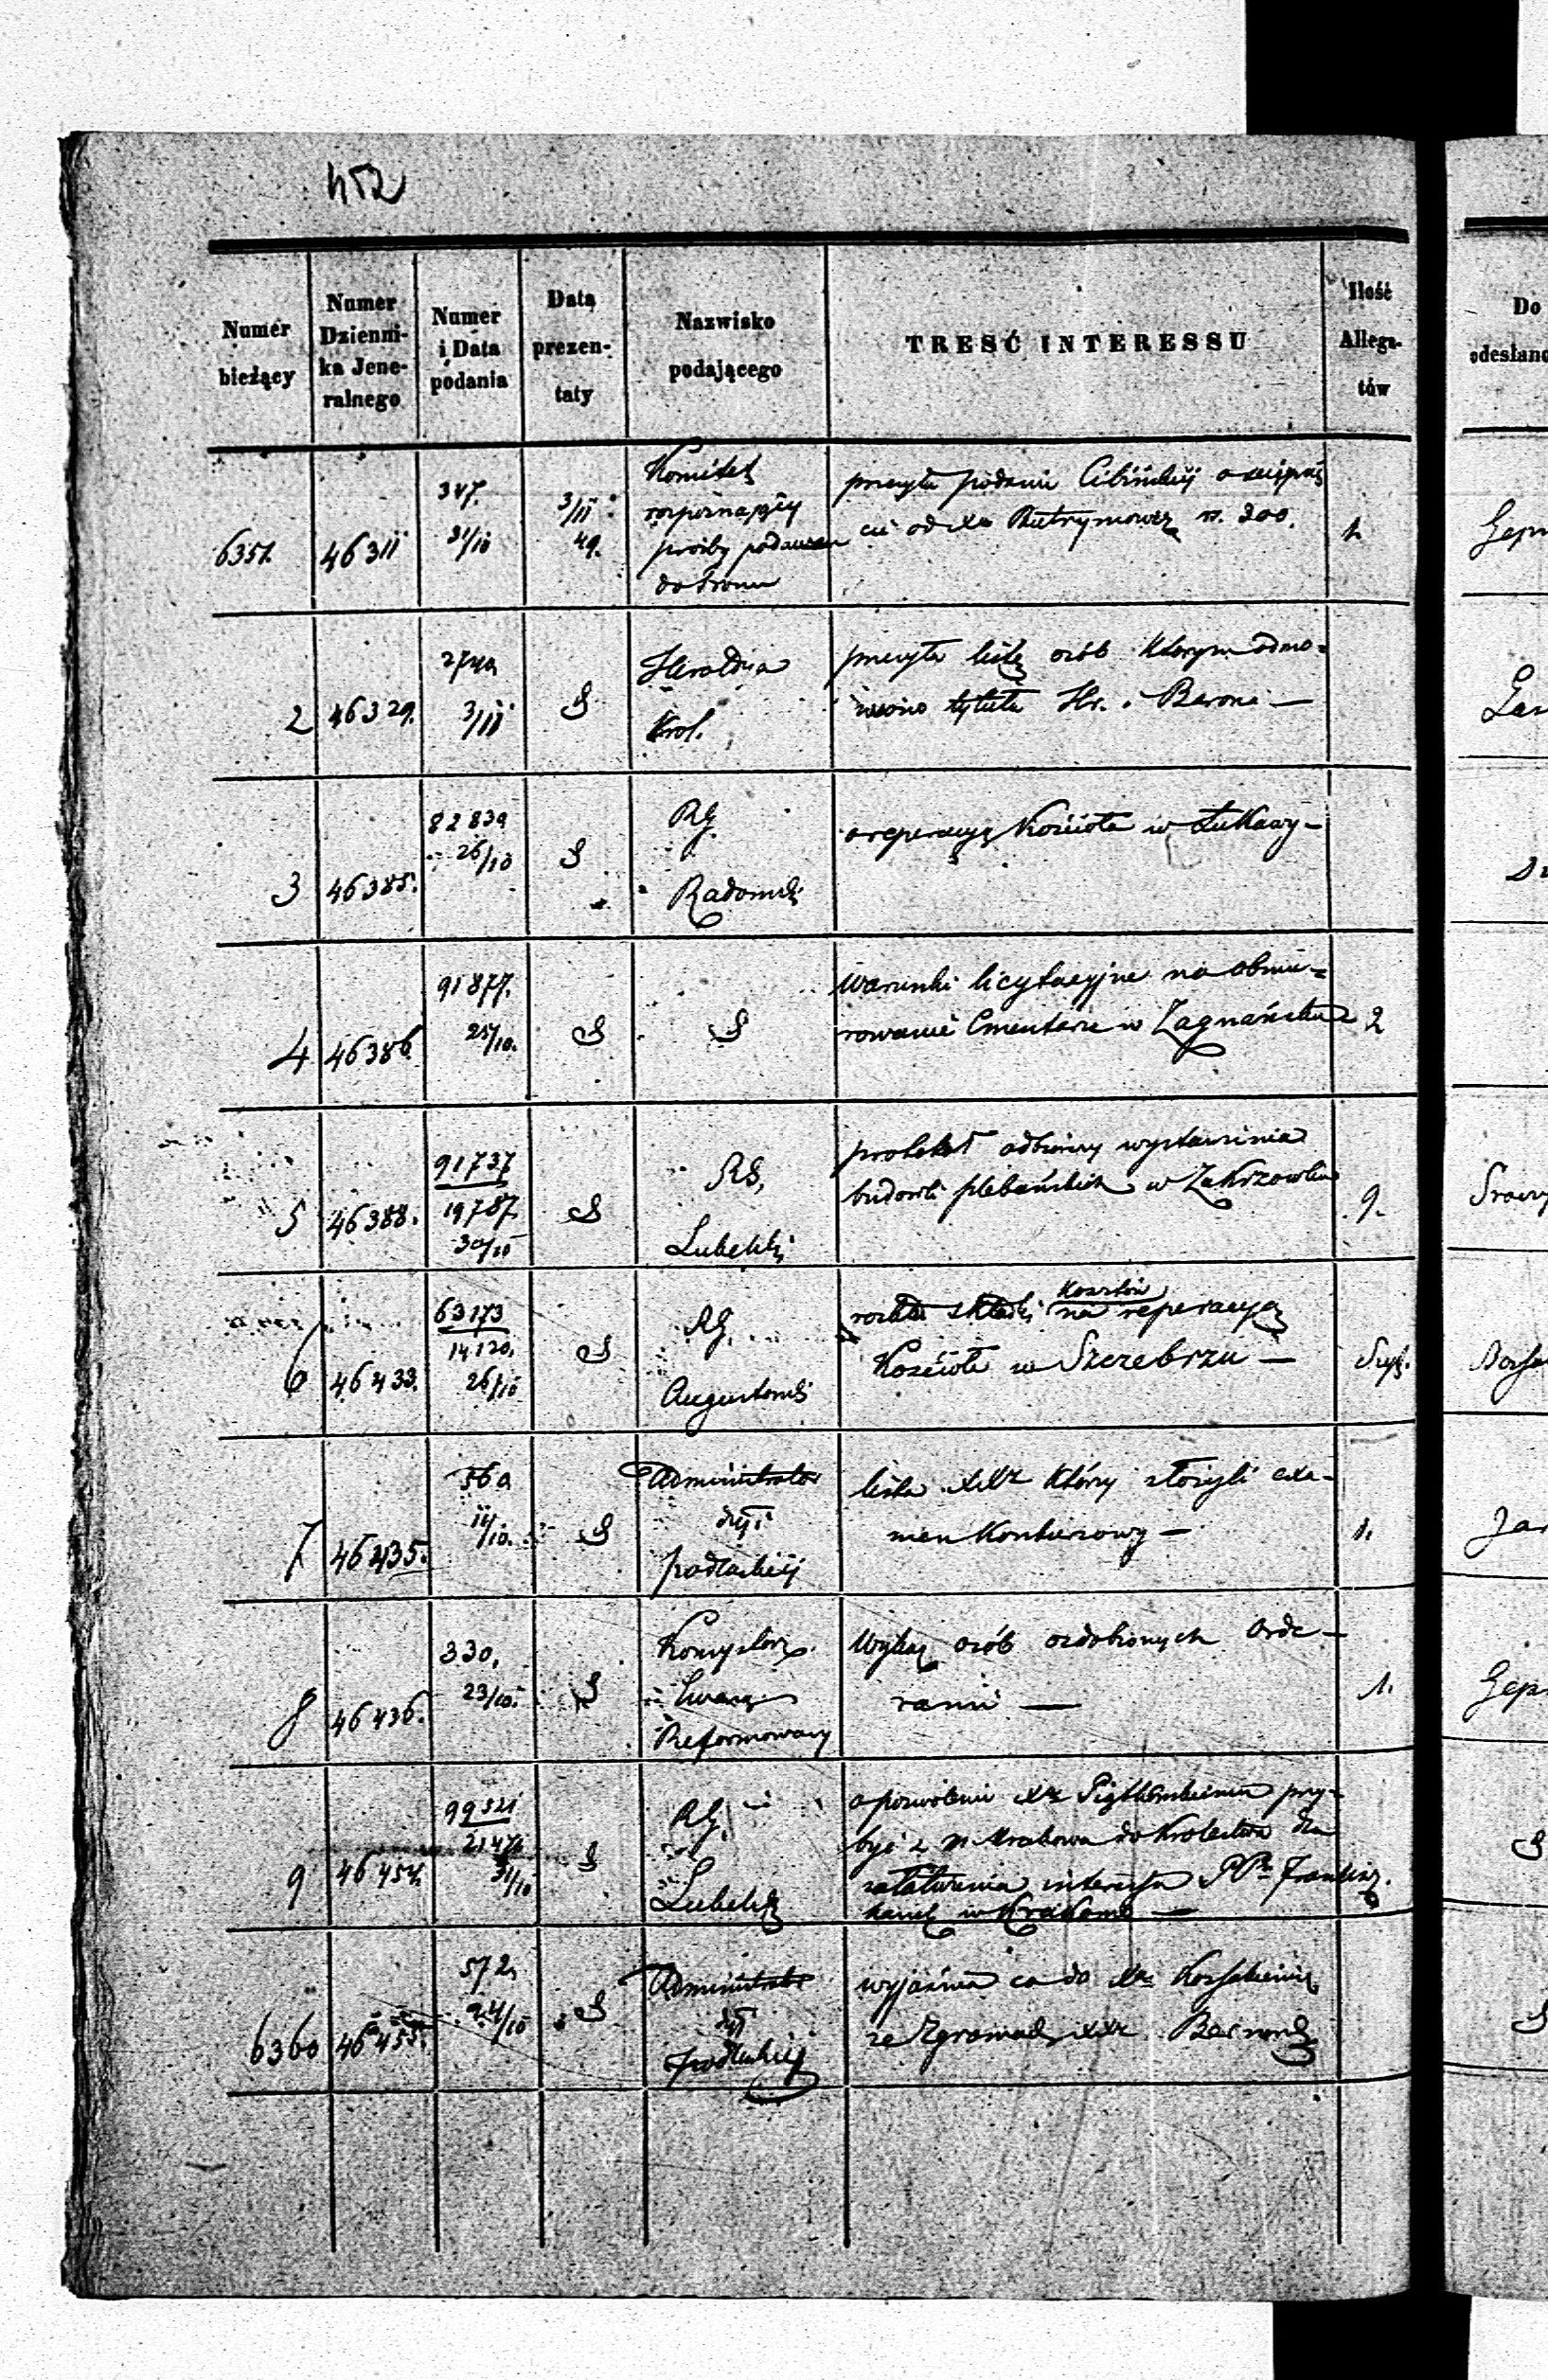 452
Numer bieżący
Numer Dzienni-ka Jene-ralnego
Numer i Data podania
Data prezen-taty
Nazwisko podającego
TREŚĆ INTERESSU
Ilość Allega-tów
Do odesłano
6351. 46311 347. 31/10 3/11 49.
Komitet
rozpoznający
prośby podawane
do tronu
przesyła podanie
od Xa Butrymowicz 300.
1.
2 46329. 3/11 S
Heroldya
Król.
przesyła listę osób którym odmo-
wiono tytułu Hr. i Barona —
3 46385. 82839 26/10 S
RG.
Radomski
o reperacyę Kościoła w Łukawy —
4 46386 91877. 25/10. S S
Warunki licytacyjne na obmu-
rowanie Cmentarza w Zagnańsku
2
5 46388. 91737 19787. 30/10 S
RG.
Lubelski
protokół odbiorczy wystawienia
budowli plebańskich w Zakrzówku
9.
6 46433. 63173 14120. 26/10 S
RG.
Augustowski
rozkład składki kosztów na reperacyą
Kościoła w Szczebrzu —
7 46435. 11/10. S
Administrator
dyi
podlaskiej
lista XXz którzy złożyli exa-
men konkursowy —
1.
8 46436. 330. 23/10. S
Konsystorz
Ewang.
Reformowany
Wykaz osób ozdobionych Orde-
rami —
1.
9 46454. 99521 31/10 S
RG.
Lubelski
o pozwolenie Xz przy-
być z m. Krakowa do Królestwa dla
załatwienia interessu PPn Francisz-
kanek w Krakowie —
6360 46455. 572. 24/10 S
Administrator
dyi
podlaskiej
wyjaśnia co do Xa
ze Zgromadz. XX